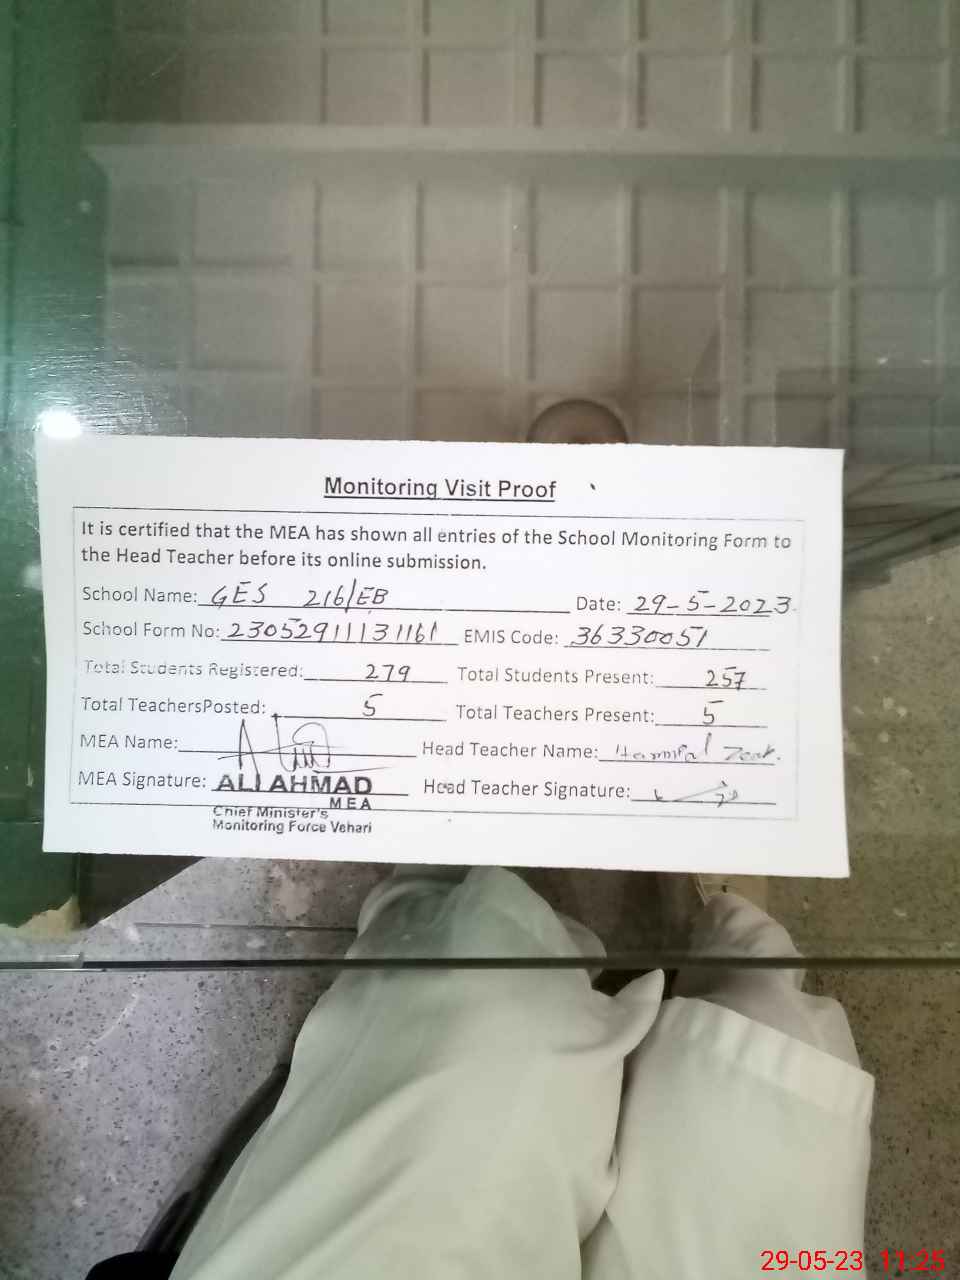 Monitoring Visit Proof
It is certified that the MEA has shown all entries of the School Monitoring Form to
the Head Teacher before its online submission.
School Name: GES 216/EB Date: 29-5-2023.
School Form No: 23052911131161 EMIS Code: 36330051
Total Students Registered: 279 Total Students Present: 257
Total TeachersPosted: 5 Total Teachers Present: 5
MEA Name: Head Teacher Name:
MEA Signature: ALI AHMAD Head Teacher Signature:
MEA
Chief Minister's
Monitoring Force Vehari
29-05-23 11:25